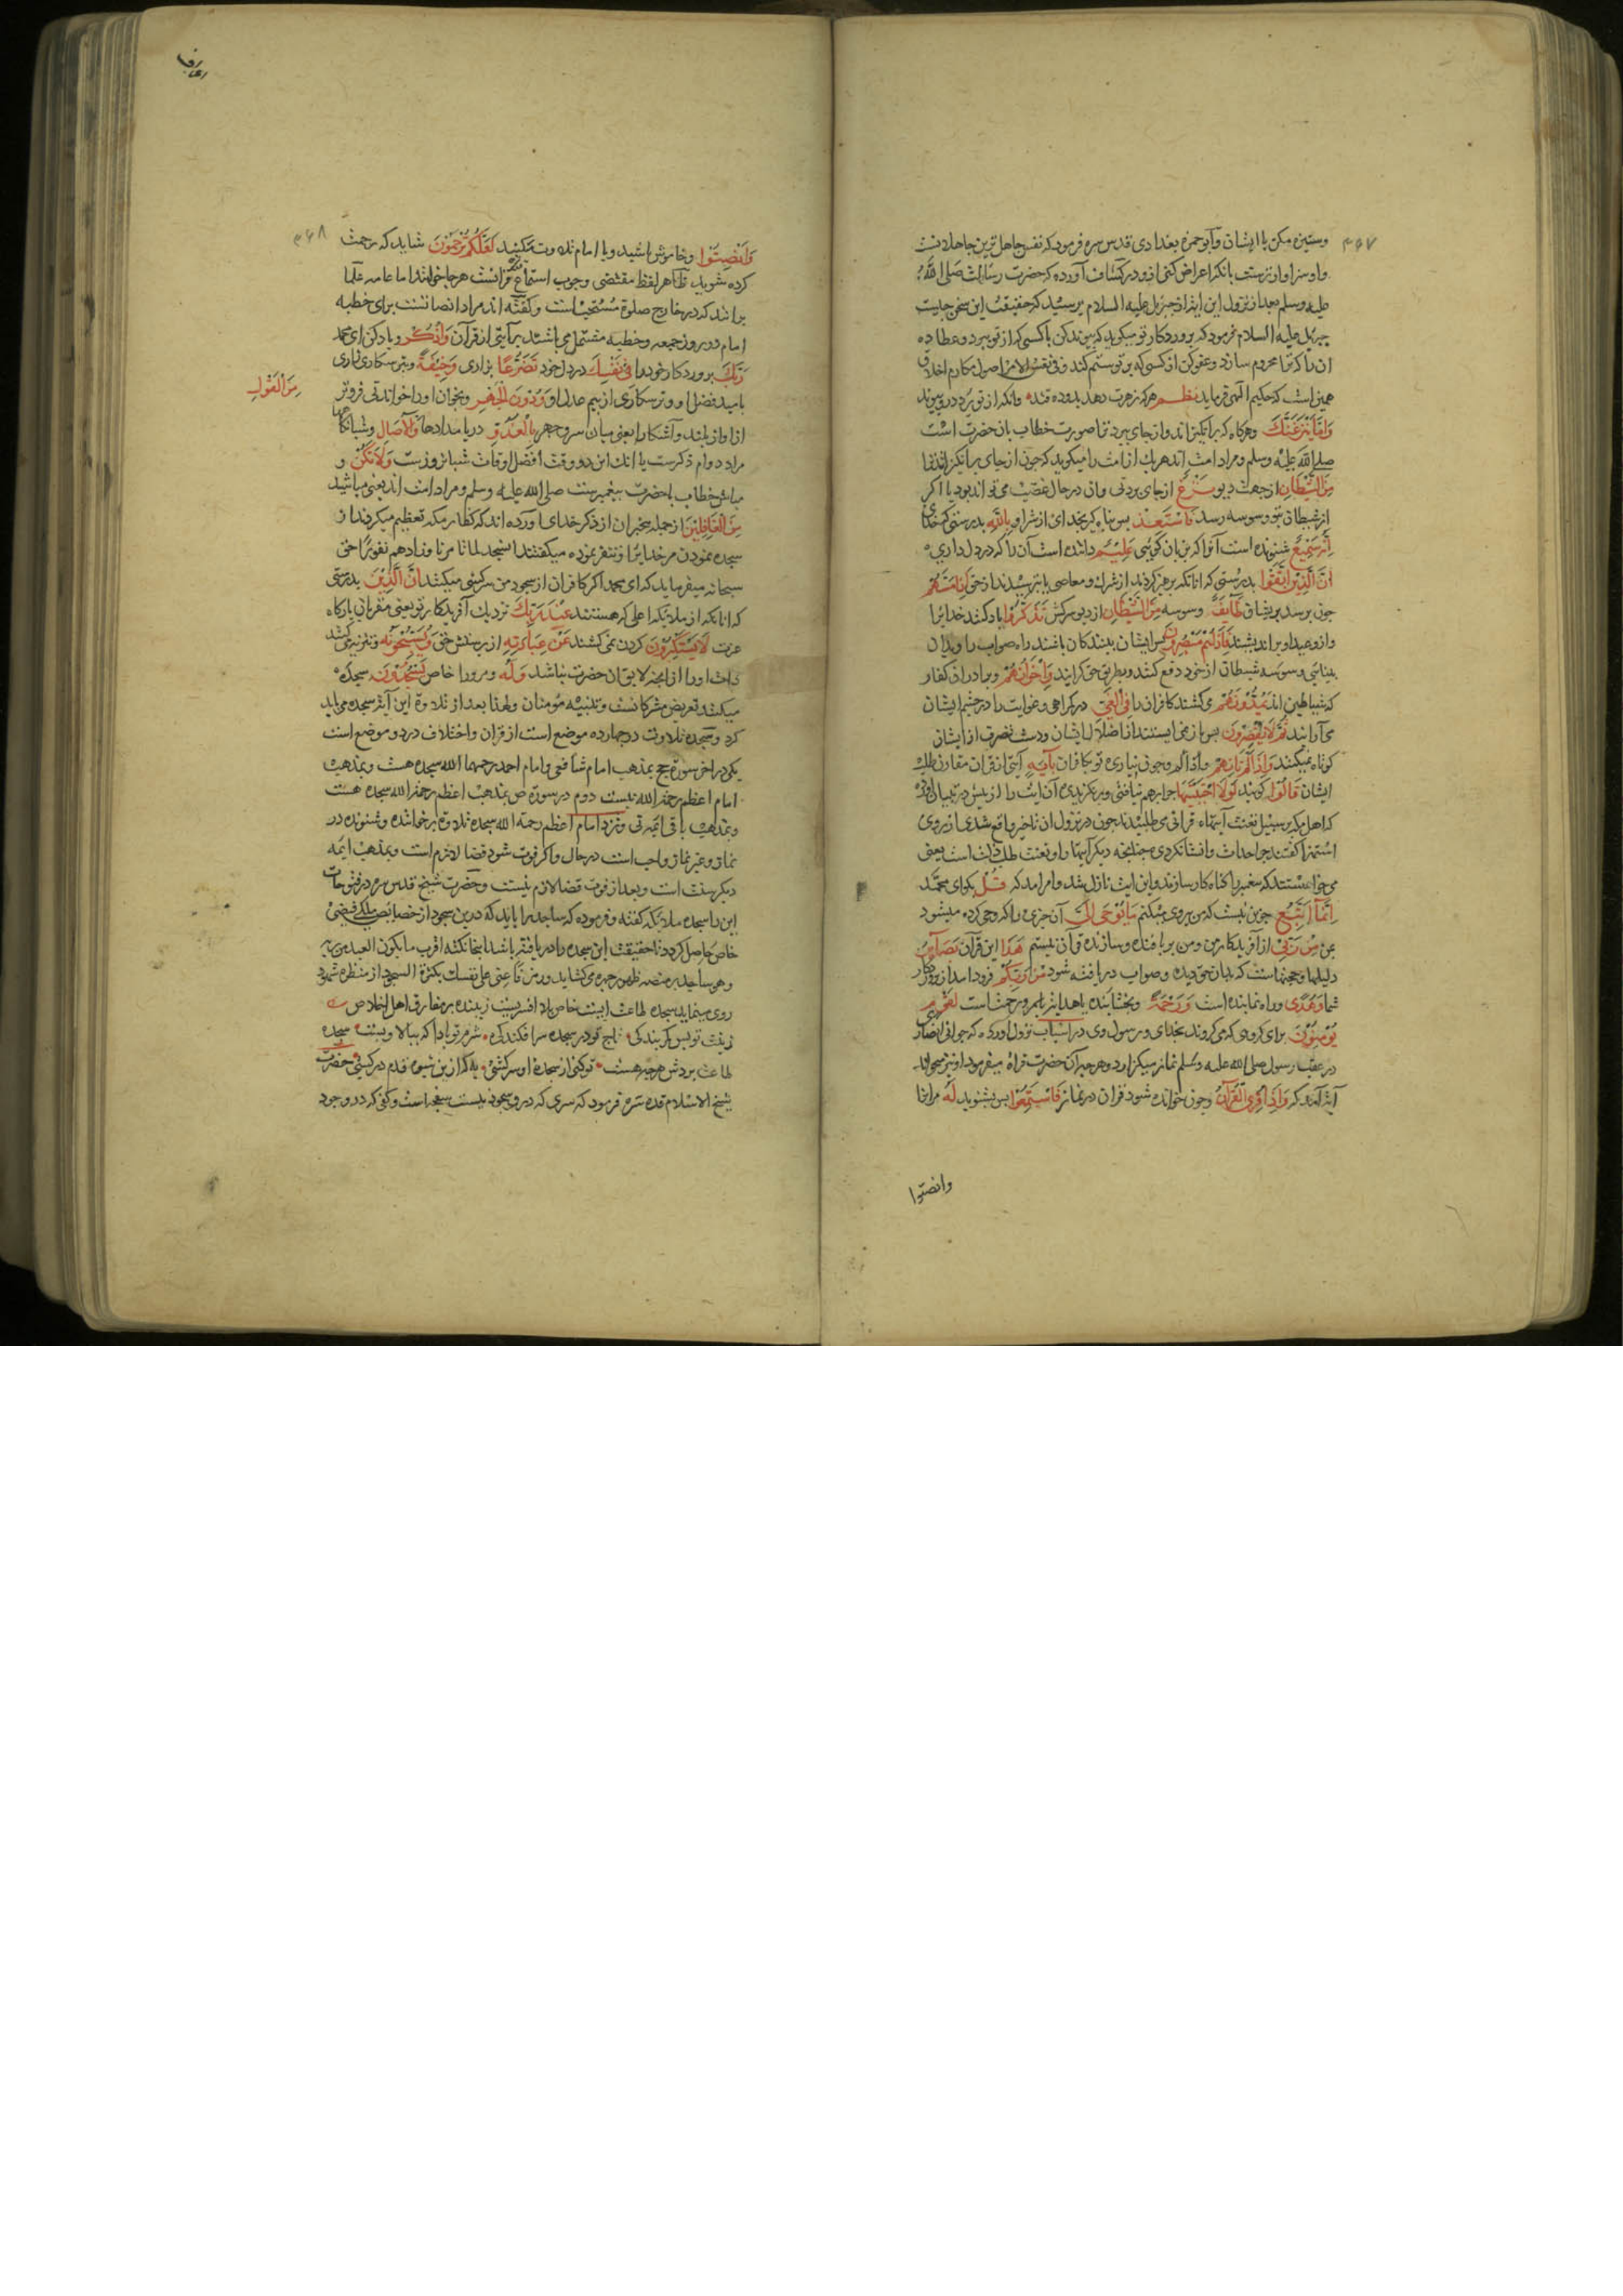 ۳۶۷
وستیزه مکن با ایشان و ابو حمزه بغدادی قدس سره فرمود که نفس جاهل ترین جاهلانست
واو سزاوارترست بانکه اعراض کنی ازو در کشاف آورده که حضرت رسالت صلی الله
علیه وسلم بعد از نزول این ایه از جبرئیل علیه السلام پرسید که حقیقت این سخن چیست
جبریل علیه السلام فرمود که پروردکار تو میکوید که پیوند کن با کسی که از تو ببرد و عطا ده
ان را که ترا محروم سازد و عفو کن از کسی که بر تو ستم کند و فی نفس الامر اصول مکارم اخلاق
همین است که حکیم الهی فرماید نظم هرکه زهرت دهد بدو ده قند وانکه از تو برد درو پیوند
وَاِمَّا یَنْزَغَنَّکَ وهرکاه که برانکیزاند و از جای ببرد ترا صورت خطاب بان حضرت است
صلی الله علیه وسلم و مراد امت اند هریک از امت را میکوید که چون از جای برانکیزاند ترا
مِنَ الشَّیْطَانِ از جهت دیو نَزْغٌ از جای بردنی وان در حال غضب می تواند بود یا اکر
از شیطان بتو وسوسه رسد فَاسْتَعِذْ پس پناه کیر بخدای از شر او بِاللّٰهِ بدرستی که خدای
اِنَّهُ سَمِیعٌ شنونده است آنرا که بزبان کویی عَلِیْمٌ داننده است آن را که در دل داری
اِنَّ الَّذِیْنَ اتَّقَوْا بدرستی که انانکه پرهیز کردند از شرک و معاصی یا بترسیدند از حق اِذَا مَسَّهُمْ
چون برسد بریشان طَآئِفٌ وسوسه مِنَ الشَّیْطَانِ از دیو سرکش تَذَکَّرُوْا یاد کنند خدایرا
واز وعید او براندیشند فَاِذَا هُمْ مُبْصِرُوْنَ پس ایشان بینندکان باشند راه صواب را و بدان
بینایی وسوسه شیطان از خود دفع کنند و بطریق حق کرایند وَاِخْوَانُهُمْ و برادران کفار
که شیاطین اند یَمُدُّوْنَهُمْ می کشند کافران را فِی الْغَیِّ در کمراهی و غوایت را در چشم ایشان
می آرایند ثُمَّ لَا یُقْصِرُوْنَ پس باز نمی ایستند از اضلال ایشان و دست تصرف از ایشان
کوتاه نمیکنند وَاِذَا لَمْ تَأْتِهِمْ واذا لم وچون نیاری تو بکافران بِآیَةٍ آیتی از قران مقارن طلب
ایشان قَالُوْا کویند لَوْلَا اجْتَبَیْتَهَا چرا بهم نیافتی و برنکزیدی آن ایت را از پیش در تبیان آورده
که اهل مکه بر سبیل تعنت آیتهاء قرانی می طلبیدند چون در نزول ان تاخیر واقع شدی از روی
استهزا کفتند چرا احداث وانشا نکردی چنانچه دیکر آیتها را و تعنت طلب ذلت است یعنی
می خواستند که پیغمبر را کناه کار سازند و این ایت نازل شد وامر امد که قُلْ بکو ای محمد
اِنَّمَا اَتَّبِعُ جز این نیست که من پیروی میکنم مَا یُوْحَی اِلَیَّ آن چیزی را که وحی کرده میشود
بمن مِنْ رَبِّی از آفریدکار من و من بربافنده و سازنده قرآن نیستم هَذَا این قرآن بَصَآئِرُ
دلیلها و حجتهاست که بدان حق دیده و صواب دریافته شود مِنْ رَبِّکُمْ فرود امد از پروردکار
شما وَهُدًی و راه نماینده است وَرَحْمَةٌ و بخشاینده یا هدایتی بامر و رحمت است لِقَوْمٍ
یُؤْمِنُوْنَ برای کروهی که می کروند بخدای و رسول وی در اسباب نزول آورده که جوانی انصار
در عقب رسول صلی الله علیه وسلم نماز میکزارد و هر چه آن حضرت قراة میفرمود او نیز میخواند
آیة آمد که وَاِذَا قُرِئَ الْقُرْآنُ وچون خوانده شود قران در نماز فَاسْتَمِعُوْا پس بشنوید لَهُ مرانرا
وانصتوا
اعراف
۳۶۸
وَاَنْصِتُوْا و خاموش باشید و با امام تلاوت مکنید لَعَلَّکُمْ تُرْحَمُوْنَ شاید که رحمت
کرده شوید ظاهر لفظ مقتضی وجوب استماع قرانست هرجا خوانند اما عامه علما
برانند که در خارج صلوة مستحب است و کفته اند مراد انصاتست برای خطبه
امام در روز جمعه و خطبه مشتمل می باشد بر آیتی از قرآن وَاذْکُرْ و یاد کن ای محمد
رَبَّکَ پروردکار خود را فِی نَفْسِکَ در دل خود تَضَرُّعًا بزاری وَخِیْفَةً و بترسکاری زاری
بامید فضل او و ترسکاری از بیم عدل او وَدُوْنَ الْجَهْرِ و بخوان او را خواندنی فروتر
مِنَ الْقَوْلِ
از اواز بلند و آشکارا یعنی میان سر و جهر بِالْغُدُوِّ در بامدادها وَالْآصَالِ و شبانکاهها
مراد دوام ذکرست یا انک این دو وقت افضل اوقات شبانروزست وَلَا تَکُنْ و
مباش خطاب با حضرت پیغمبرست صلی الله علیه وسلم و مراد امت اند یعنی مباشید
مِنَ الْغَافِلِیْنَ از جمله بیخبران از ذکر خدای اورده اند که کفار مکه تعظیم میکردند از
سجده نمودن مر خدایرا و تنفر نموده میکفتند انسجد لما تامرنا وزادهم نفورًا حق
سبحانه میفرماید که ای محمد اکر کافران از سجود من سرکشی میکنند اِنَّ الَّذِیْنَ بدرستی
که انانکه از ملائکه اعلی که هستند عِنْدَ رَبِّکَ نزدیک آفریدکار تو یعنی مقربان بارکاه
عزت لَا یَسْتَکْبِرُوْنَ کردن نمی کشند عَنْ عِبَادَتِهِ از پرستش حق وَیُسَبِّحُوْنَهُ و تنزیه میکنند
ذات او را از انچه لایق ان حضرت نباشد وَلَهُ و مر او را خاص یَسْجُدُوْنَ سجده
میکنند تعریض مشرکانست و تنبیه مؤمنان و لهذا بعد از تلاوة این آیت سجده می باید
کرد و سجده تلاوت در چهارده موضع است از قران و اختلاف در دو موضع است
یکی در اخر سوره حج بمذهب امام شافعی و امام احمد رحمهما الله سجده هست و بمذهب
امام اعظم رحمه الله نیست دوم در سوره ص بمذهب اعظم رحمه الله سجده هست
و بمذهب باقی ائمه نی و نزد امام اعظم رحمه الله سجده تلاوة بر خواننده و شنونده در
نماز و غیر نماز واجب است در حال و اکر فوت شود قضا لازم است و بمذهب ایمه
دیکر سنت است و بعد از فوت قضا لازم نیست و حضرت شیخ قدس سره در فتوحات
این را سجده ملائکه کفته و فرموده که ساجد را باید که درین سجود از خصایص ملکی فیضی
خاص حاصل کردد تا حقیقت این سجده را دریافته باشد اقرب ما یکون العبد من ربه
وهو ساجد فاعنی علی نفسک بکثرة السجود از منظره شهود
روی مینماید سجده طاعت زیبنده بر مفارق اهل اخلاص
زینت تو بس کمر بندکی تاج تو در سجده سر افکندکی شرم تو بادا که ببالا و پست سجده
طاعت بردش هرچه هست تو کنی از سجده او سرکشی به که ازین شیوه قدم در کشی حضرت
شیخ الاسلام قدس سره فرمود که سری که درو سجود نیست سفچه است و کفی که درو جود